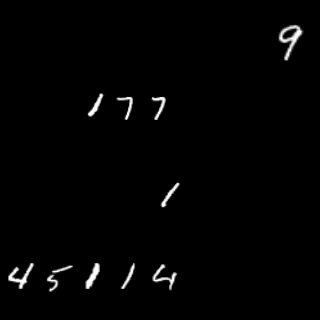 9
177
1
45114